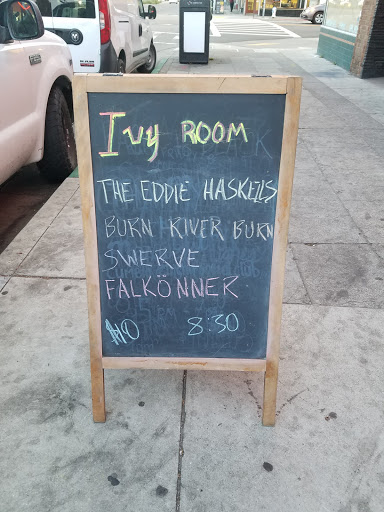 Ivy ROOM
THE EDDIE HASKELLS
BURN RIVER BURN
SWERVE
FALKÖNNER
$10 8:30